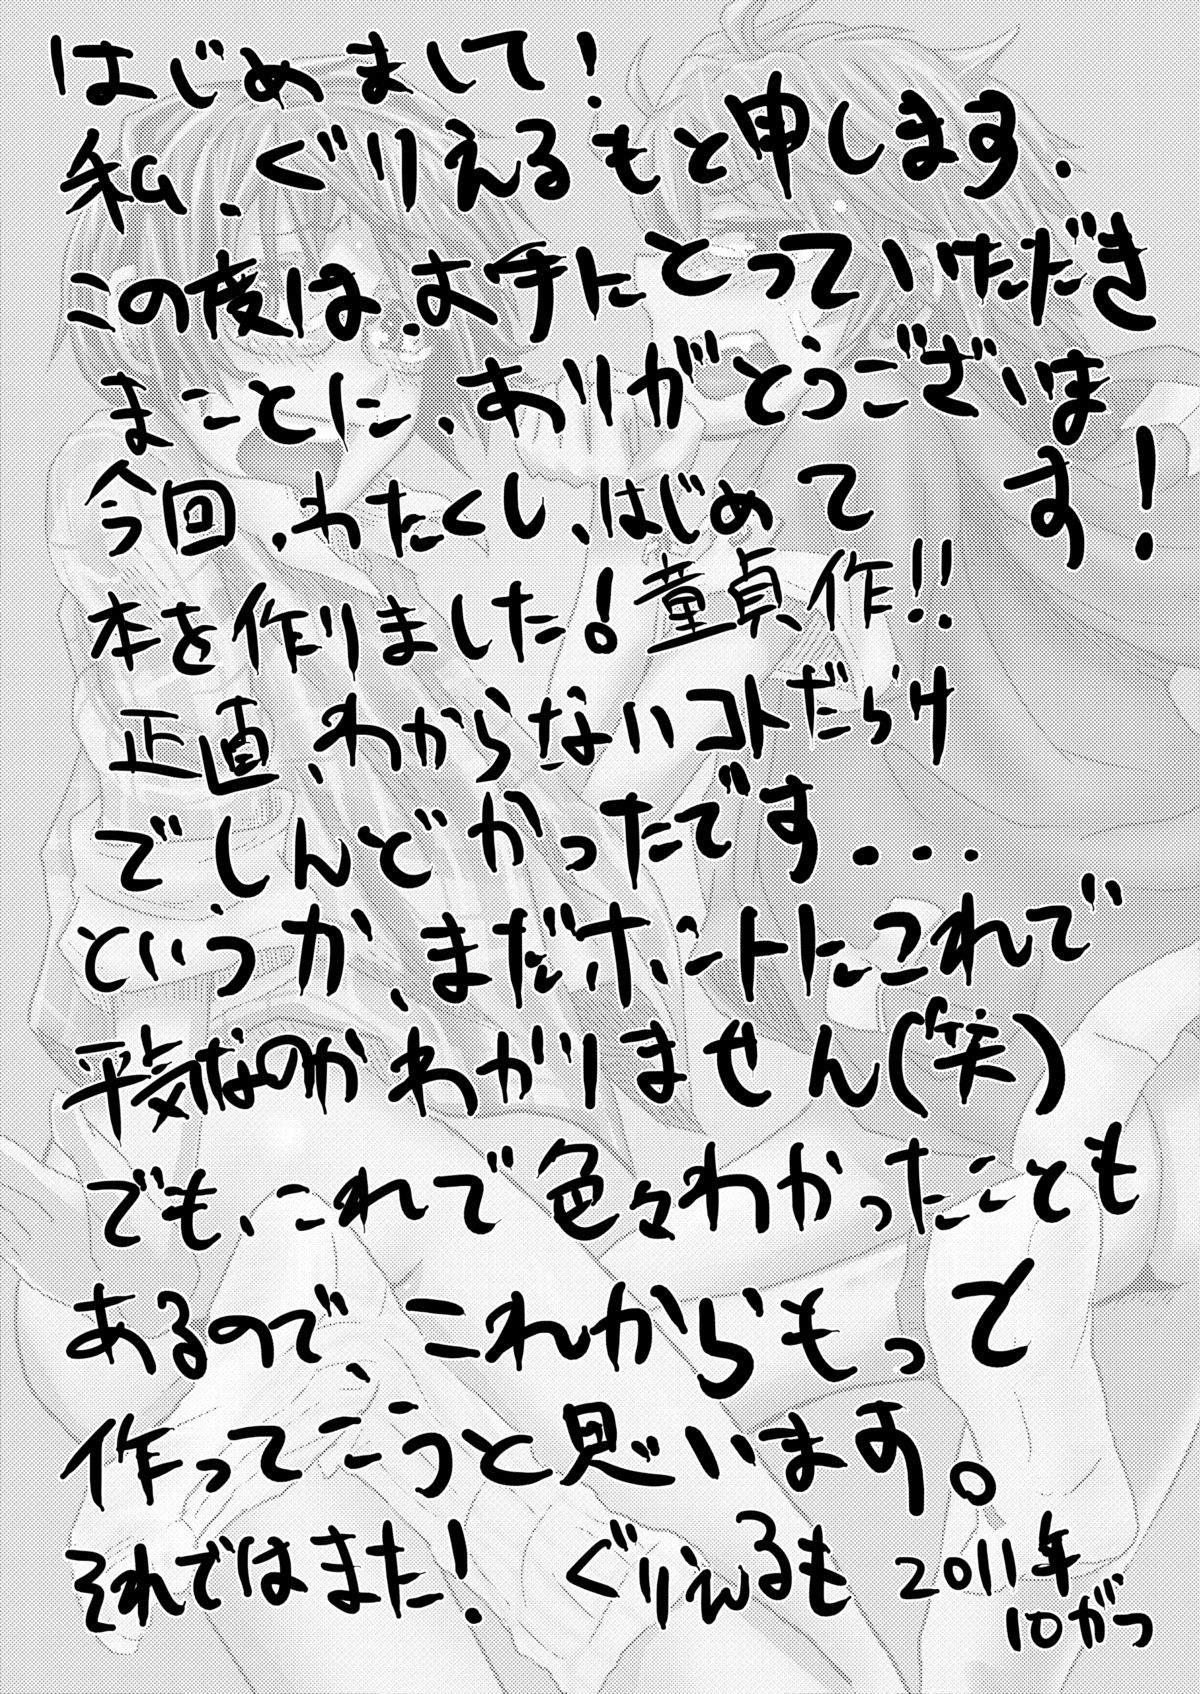 はじめまして!
私、ぐりえるもと申します.
この度は、お手にとっていただき
まことに、ありがとうございま
す!
今回、わたくし、はじめて
本を作りました! 童貞作!!
正直、わからないコトだらけ
でしんどかったです...
というか、まだホントにこれで
平気なのかわかりません(笑)
でも、これで色々わかったことも
あるので、これからもっと
作ってこうと思います。
それではまた! ぐりえるも 2011年
10がつ